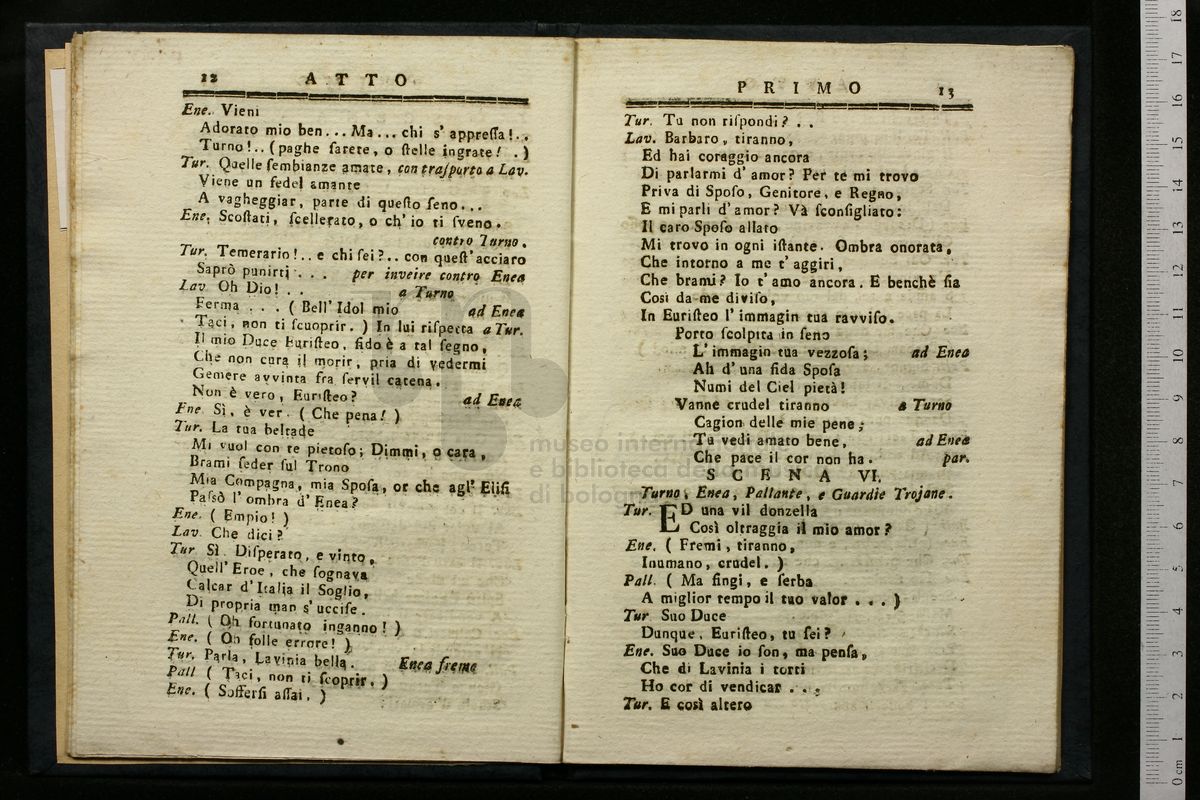 12 ATTO
Ene. Vieni
Adorato mio ben... Ma... chi s' appreſſa!..
Turno!.. (paghe ſarete, o ſtelle ingrate! .)
Tur. Quelle ſembianze amate, con traſporto a Lav.
Viene un fedel amante
A vagheggiar, parte di queſto ſeno...
Ene. Scoſtati, ſcellerato, o ch' io ti ſveno.
contro Turno.
Tur. Temerario!.. e chi ſei?.. con queſt' acciaro
Saprò punirti . . . per inveire contro Enea
Lav Oh Dio! . . a Turno
Ferma . . . ( Bell' Idol mio ad Enea
Taci, non ti ſcuoprir. ) In lui riſpetta a Tur.
Il mio Duce Euriſteo, fido è a tal ſegno,
Che non cura il morir, pria di vedermi
Gemere avvinta fra ſervil catena.
Non è vero, Euriſteo? ad Enea
Ene Sì, è ver. ( Che pena! )
Tur. La tua beltade
Mi vuol con te pietoſo; Dimmi, o cara,
Brami ſeder ſul Trono
Mia Compagna, mia Spoſa, or che agl' Eliſi
Paſsò l' ombra d' Enea?
Ene. ( Empio! )
Lav. Che dici?
Tur Sì. Diſperato, e vinto,
Quell' Eroe, che ſognava
Calcar d' Italia il Soglio,
Di propria man s' ucciſe.
Pall. ( Oh fortunato inganno! )
Ene. ( Oh folle errore! )
Tur. Parla, Lavinia bella. Enea freme
Pall ( Taci, non ti ſcoprir. )
Ene. ( Sofferſi aſſai. )
PRIMO 13
Tur. Tu non riſpondi? . .
Lav. Barbaro, tiranno,
Ed hai coraggio ancora
Di parlarmi d' amor? Per te mi trovo
Priva di Spoſo, Genitore, e Regno,
E mi parli d' amor? Và ſconſigliato:
Il caro Spoſo allato
Mi trovo in ogni iſtante. Ombra onorata,
Che intorno a me t' aggiri,
Che brami? Io t' amo ancora. E benchè ſia
Così da me diviſo,
In Euriſteo l' immagin tua ravviſo.
Porto ſcolpita in ſeno
L' immagin tua vezzoſa; ad Enea
Ah d' una fida Spoſa
Numi del Ciel pietà!
Vanne crudel tiranno a Turno
Cagion delle mie pene;
Tu vedi amato bene, ad Enea
Che pace il cor non ha. par.
SCENA VI.
Turno, Enea, Pallante, e Guardie Trojane.
Tur. ED una vil donzella
Così oltraggia il mio amor?
Ene. ( Fremi, tiranno,
Inumano, crudel. )
Pall. ( Ma fingi, e ſerba
A miglior tempo il tuo valor . . . )
Tur Suo Duce
Dunque, Euriſteo, tu ſei?
Ene. Suo Duce io ſon, ma penſa,
Che di Lavinia i torti
Ho cor di vendicar . . .
Tur. E così altero
museo intern
e biblioteca della musica
di bologna
0 cm 1 2 3 4 5 6 7 8 9 10 11 12 13 14 15 16 17 18